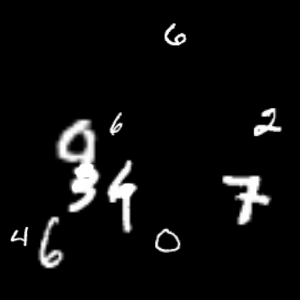 6
6 2
9
3 4 7
4 6 0